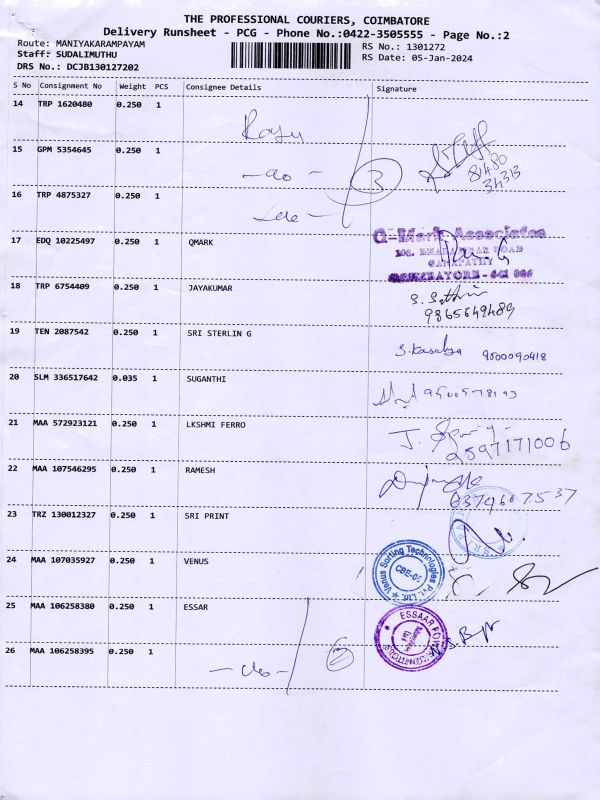 THE PROFESSIONAL COURIERS, COIMBATORE
Delivery Runsheet - PCG - Phone No.:0422-3505555 - Page No.:2
Route: MANIYAKARAMPAYAM RS No.: 1301272
Staff: SUDALIMUTHU RS Date: 05-Jan-2024
DRS No.: DCJB130127202
S No Consignment No Weight PCS Consignee Details Signature
14 TRP 1620480 0.250 1
15 GPM 5354645 0.250 1 -do- 3
81480
34313
16 TRP 4875327 0.250 1 -do-
17 EDQ 10225497 0.250 1 QMARK Q-Mark Associates
ROAD
GANAPATHY
COIMBATORE - 641 006
18 TRP 6754409 0.250 1 JAYAKUMAR
9865649489
19 TEN 2087542 0.250 1 SRI STERLIN G 9500090418
20 SLM 336517642 0.035 1 SUGANTHI 9500578193
21 MAA 572923121 0.250 1 LKSHMI FERRO
9597171006
22 MAA 107546295 0.250 1 RAMESH
6374667537
23 TRZ 130012327 0.250 1 SRI PRINT
24 MAA 107035927 0.250 1 VENUS Venus Sorting Technologies Pvt. Ltd.
CBE-06
25 MAA 106258380 0.250 1 ESSAR ESSAAR
26 MAA 106258395 0.250 1 -do- 2